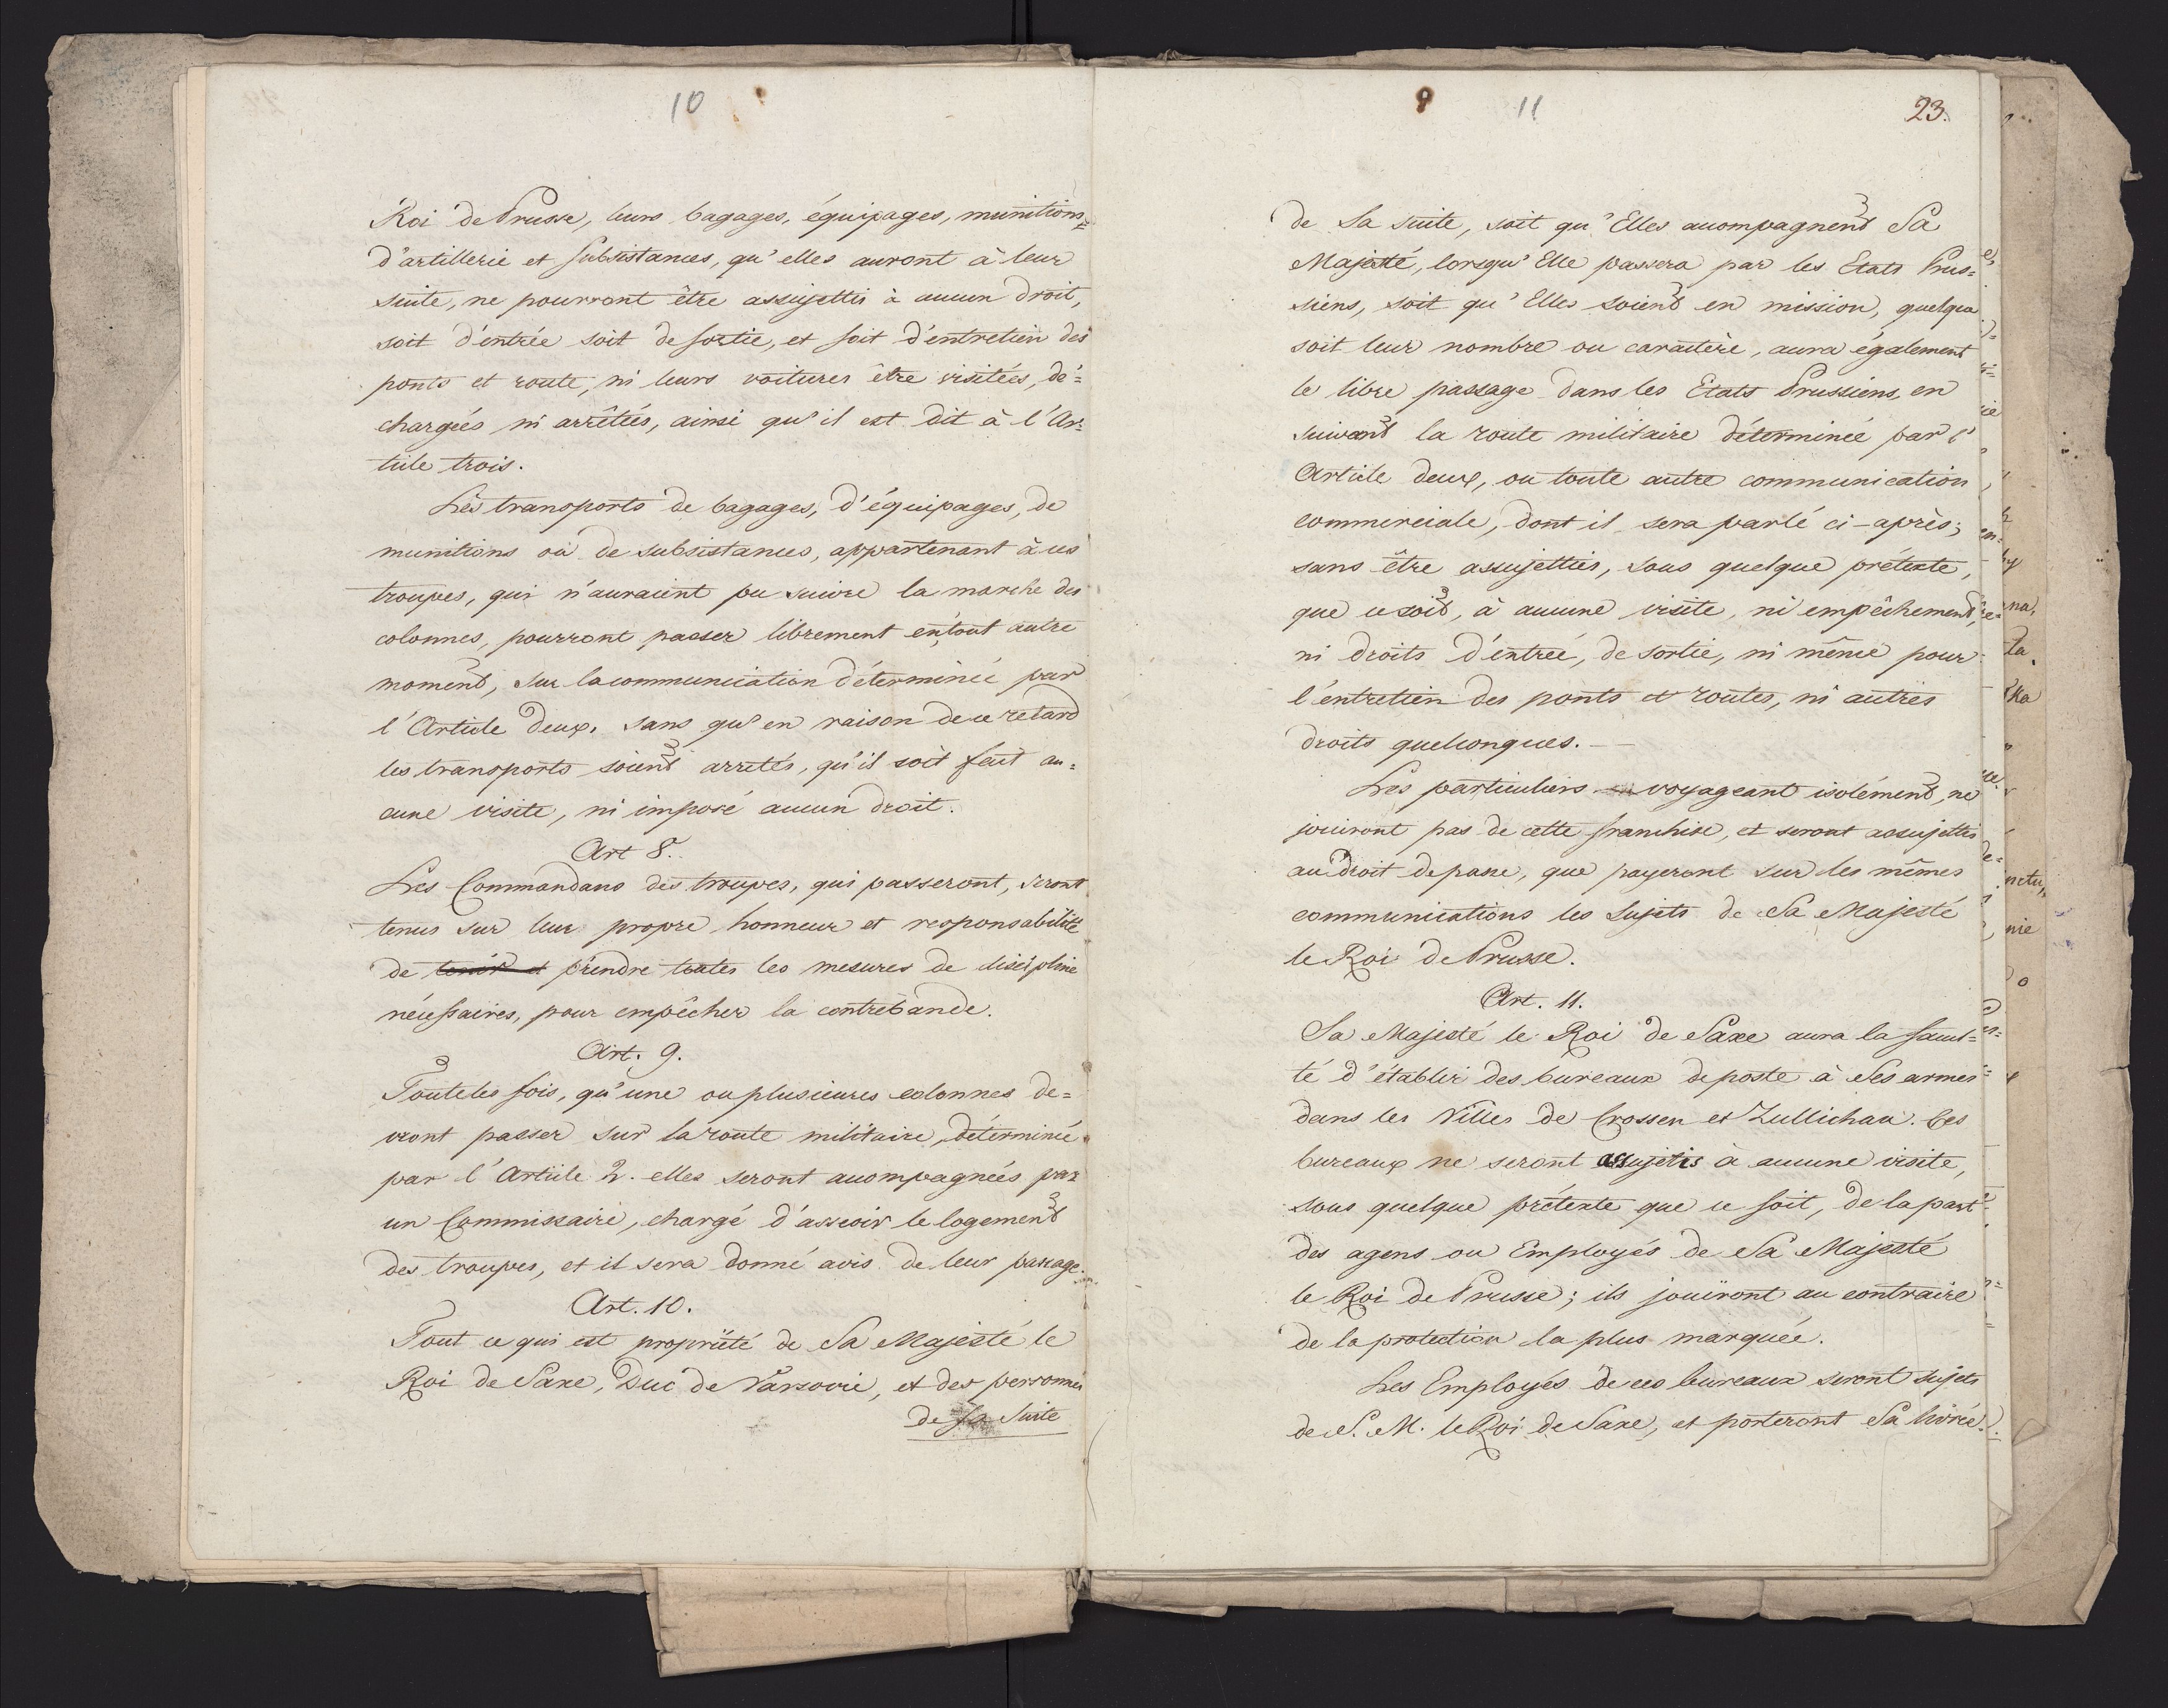 10
Roi de Prusse, leurs bagages, équipages, munitions
d'artillerie et subsistances, qu'elles auront à leur
suite, ne pourront être assujettis à aucun droit,
soit d'entrée soit de sortie, et soit d'entretien des
ponts et route, ni leurs voitures être visitées, dé=
chargées ni arrêtées, ainsi qu'il est dit à l'Ar=
ticle trois.
Les transports de bagages, d'équipages, de
munitions ou de subsistances, appartenant à ces
troupes, qui n'auraient pu suivre la marche des
colonnes, pourront passer librement en tout autre
moment, sur la communication déterminée par
l'Article deux, sans qu'en raison de ce retard
les transports soient arretés, qu'il soit fait au=
cune visite, ni imposé aucun droit.
Art 8.
Les Commandans des troupes, qui passeront, seront
tenus sur leur propre honneur et responsabilité
de tenir et prendre toutes les mesures de discipline
nécessaires, pour empêcher la contrebande.
Art. 9.
Toutes les fois, qu'une ou plusieures colonnes de=
vront passer sur la route militaire, déterminée
par l'Article 2. elles seront accompagnées par
un Commissaire, chargé d'asseoir le logement
des troupes, et il sera donné avis de leur passage.
Art. 10.
Tout ce qui est propriété de Sa Majesté le
Roi de Saxe, Duc de Varsovie, et des personnes
de sa Suite
11
23.
de Sa suite, soit qu'Elles accompagnent Sa
Majesté, lorsqu'Elle passera par les Etats Prus=
siens, soit qu'Elles soient en mission, quelque
soit leur nombre ou caractère, aura également
le libre passage dans les Etats Prussiens, en
suivant la route militaire déterminée par l'
Article deux, ou toute autre communication
commerciale, dont il sera parlé ci-après;
sans être assujetties, sous quelque prétexte,
que ce soit, à aucune visite, ni empêchement,
ni droits d'entrée, de sortie, ni même pour
l'entretien des ponts et routes, ni autres
droits quelconques. —
Les particuliers voyageant isolément, ne
jouiront pas de cette franchise, et seront assujettis
au droit de passe, que payeront sur les mêmes
communications les sujets de Sa Majesté
le Roi de Prusse.
Art. 11.
Sa Majesté le Roi de Saxe aura la facul=
té d'établir des bureaux de poste à Ses armes
dans les Villes de Crossen et Zullichau. Ces
bureaux ne seront assujetis à aucune visite,
sous quelque prétexte que ce soit, de la part
des agens ou Employés de Sa Majesté
le Roi de Prusse; ils jouiront au contraire
de la protection la plus marquée.
Les Employés de ces bureaux seront sujets
de S. M. le Roi de Saxe, et porteront Sa livrée.